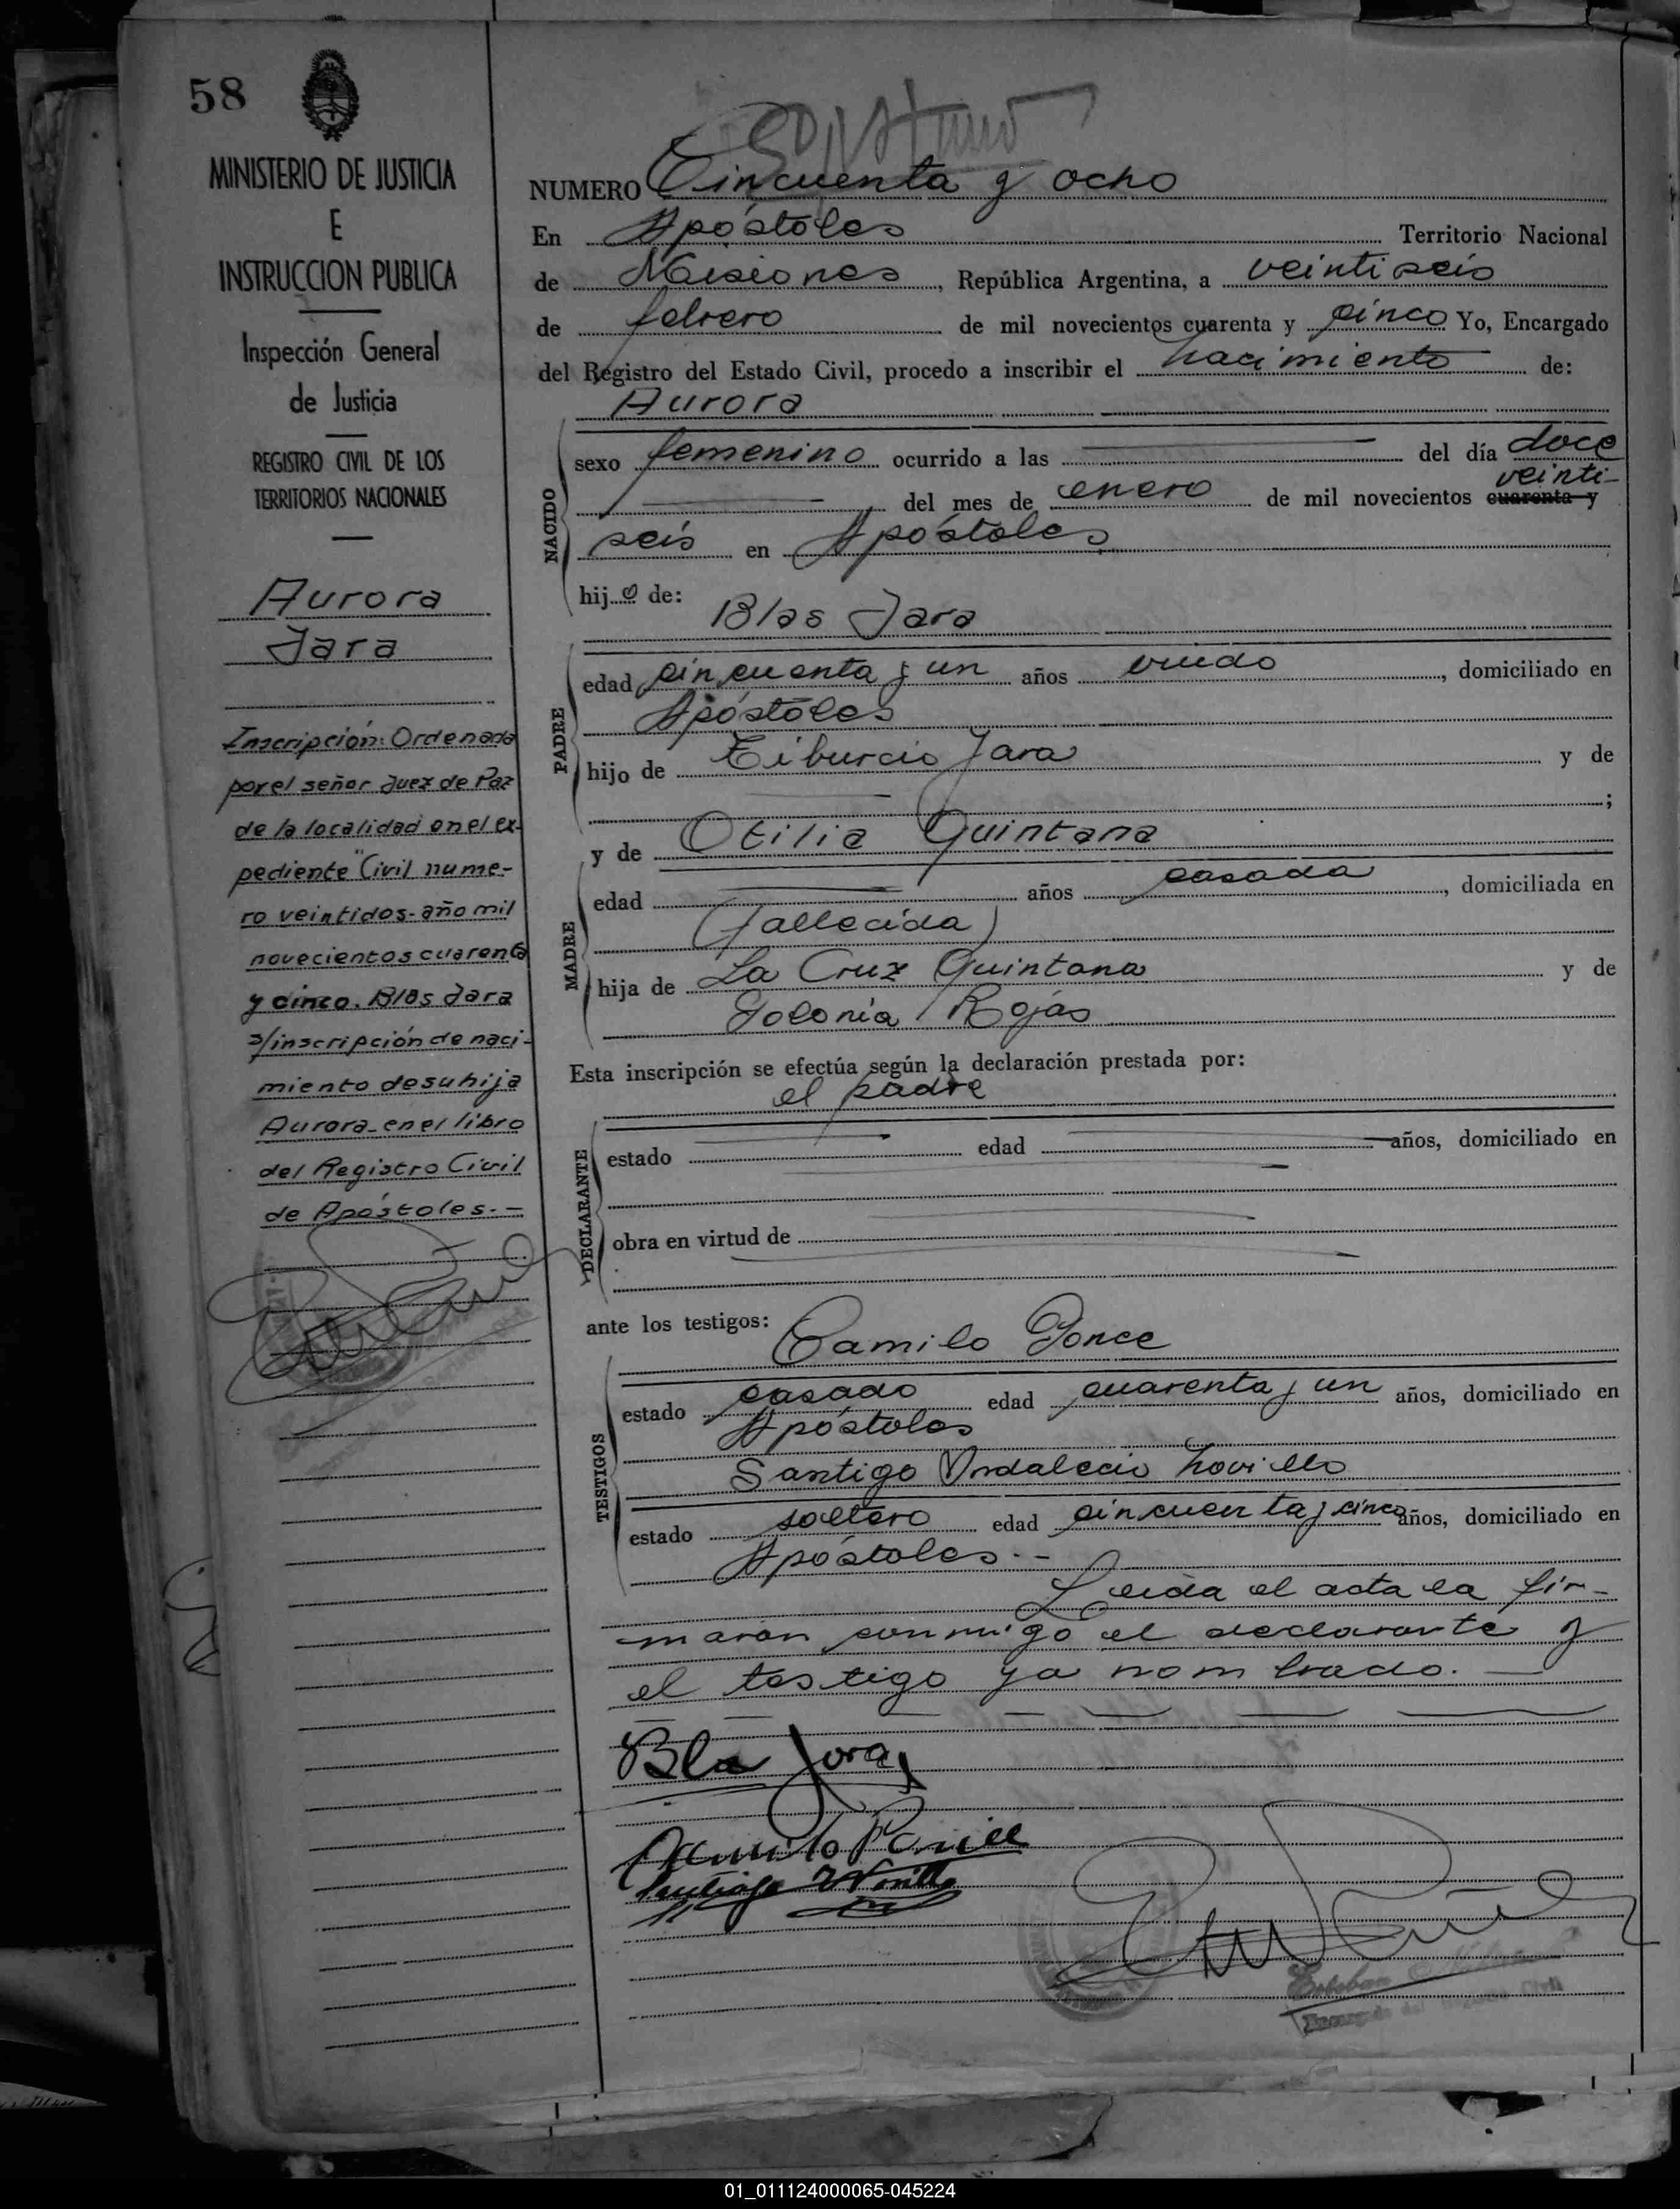 58
MINISTERIO DE JUSTICIA
E
INSTRUCCION PUBLICA
Inspección General
de Justicia
REGISTRO CIVIL DE LOS
TERRITORIOS NACIONALES
Aurora
Jara
Inscripción: Ordenada
por el señor Juez de Paz
de la localidad en el ex-
pediente "Civil nume-
ro veintidos - año mil
novecientos cuarenta
y cinco. Blas Jara
s/inscripción de naci-
miento de su hija
Aurora en el libro
del Registro Civil
de Apóstoles. -
NUMERO Cincuenta y ocho
En Apóstoles Territorio Nacional
de Misiones, República Argentina, a veintiseis
de febrero de mil novecientos cuarenta y cinco Yo, Encargado
del Registro del Estado Civil, procedo a inscribir el nacimiento de:
Aurora
NACIDO
sexo femenino ocurrido a las del día doce
del mes de enero de mil novecientos cuarenta y veinti-
seis en Apóstoles
hija de: Blas Jara
PADRE
edad cincuenta y un años viudo, domiciliado en
Apóstoles
hijo de Tiburcio Jara y de
;
y de Otilia Quintana
MADRE
edad años casada, domiciliada en
(fallecida)
hija de La Cruz Quintana y de
Polonia Rojas
Esta inscripción se efectúa según la declaración prestada por:
el padre
DECLARANTE
estado edad años, domiciliado en
obra en virtud de
ante los testigos: Camilo Ponce
TESTIGOS
estado casado edad cuarenta y un años, domiciliado en
Apóstoles
Santigo Yndalecio Novillo
estado soltero edad cincuenta y cinco años, domiciliado en
Apóstoles. -
Leida el acta la fir-
maron conmigo el declarante y
el testigo ya nombrado.
Bla Jara
Camilo Ponce
Santiago Y Novillo
Esteban
Encargado del Registro Civil
01_011124000065-045224